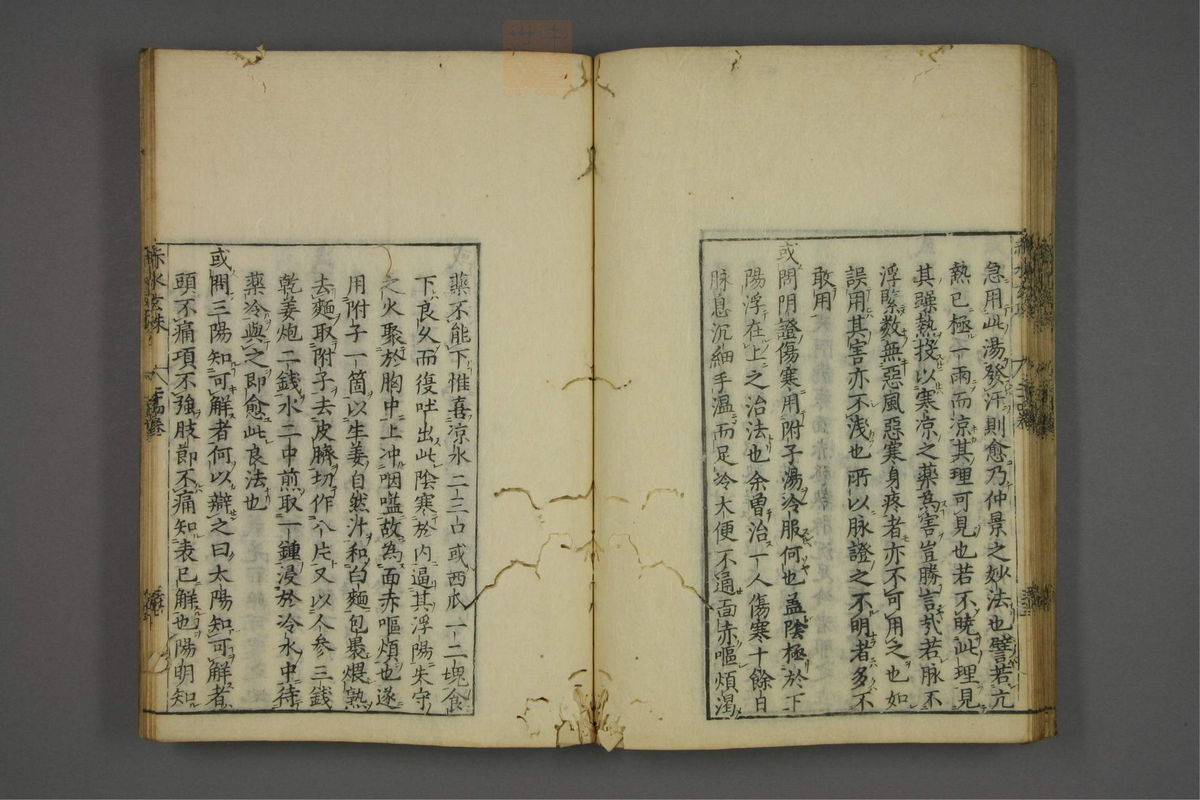 急用此湯發汗則愈乃仲景之妙法也譬若亢
熱已極一雨而凉其理可見也若不曉此理見
其躁熱投以寒凉之藥為害豈勝言哉若脉不
浮緊数無惡風惡寒身疼者亦不可用之也如
誤用其害亦不浅也所以脉證之不明者多不
敢用
或問阴證傷寒用附子湯冷服何也盖陰極於下
陽浮在上之治法也余曽治一人傷寒十餘日
脉息沉細手温而足冷大便不通面赤嘔煩渴
藥不能下惟喜凉水二三口或西瓜一二塊食
下良久而復吐出此陰寒於内逼其浮陽失守
之火聚於胸中上冲咽嗌故為面赤嘔煩也遂
用附子一箇以生姜自然汁和白麵包裹煨熟
去麵取附子去皮臍切作八片又以人参三錢
乾姜炮二錢水二中煎取一鍾浸於冷水中待
藥冷與之即愈此良法也
或問三陽知可解者何以辯之曰太陽知可解者
頭不痛項不強肢節不痛知表已解也陽明知
赤水玄珠